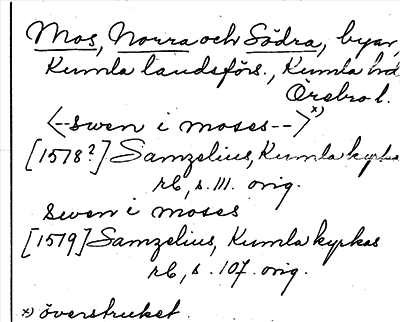 Mos, Norra och Södra, byar,
Kumla landsförs., Kumla hd
Örebro l.
<--swen i moses-->x)
[1578?] Samzelius, Kumla kyrkas
rb, s. 111. orig.
swen i moses
[1579] Samzelius, Kumla kyrkas
rb, s. 107. orig.
x) överstruket.